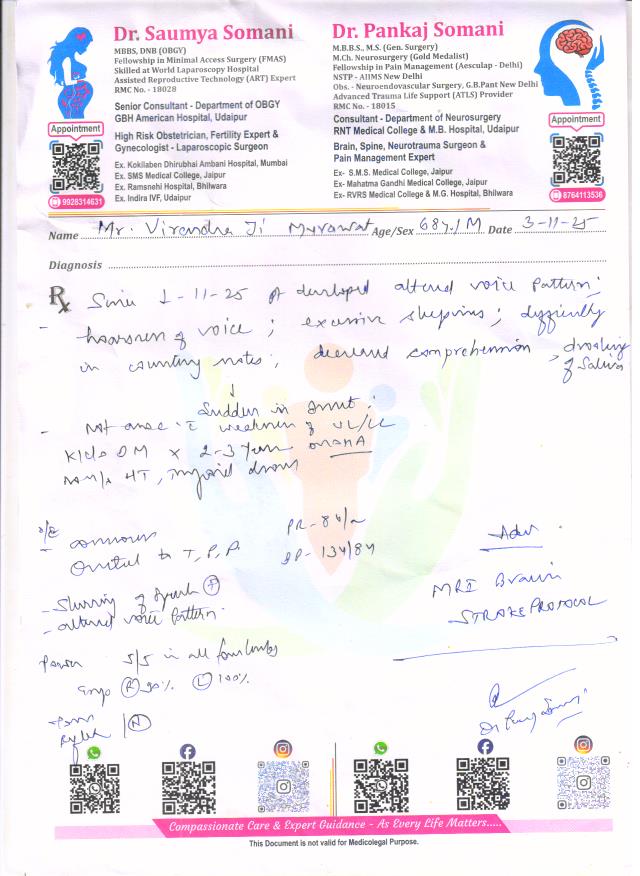 Dr. Saumya Somani
MBBS, DNB (OBGY)
Fellowship in Minimal Access Surgery (FMAS)
Skilled at World Laparoscopy Hospital
Assisted Reproductive Technology (ART) Expert
RMC No. - 18028
Senior Consultant - Department of OBGY
GBH American Hospital, Udaipur
High Risk Obstetrician, Fertility Expert &
Gynecologist - Laparoscopic Surgeon
Ex. Kokilaben Dhirubhai Ambani Hospital, Mumbai
Ex. SMS Medical College, Jaipur
Ex. Ramsnehi Hospital, Bhilwara
Ex. Indira IVF, Udaipur
Appointment
9928314631
Dr. Pankaj Somani
M.B.B.S., M.S. (Gen. Surgery)
M.Ch. Neurosurgery (Gold Medalist)
Fellowship in Pain Management (Aesculap - Delhi)
NSTP - AIIMS New Delhi
Obs. - Neuroendovascular Surgery, G.B.Pant New Delhi
Advanced Trauma Life Support (ATLS) Provider
RMC No. - 18015
Consultant - Department of Neurosurgery
RNT Medical College & M.B. Hospital, Udaipur
Brain, Spine, Neurotrauma Surgeon &
Pain Management Expert
Ex- S.M.S. Medical College, Jaipur
Ex- Mahatma Gandhi Medical College, Jaipur
Ex- RVRS Medical College & M.G. Hospital, Bhilwara
Appointment
8764113536
Name Mr. Virendra Ji Age/Sex 68y./M Date 3-11-25
Diagnosis
Rx Since 1-11-25 pt developed altered voice pattern;
- hoarsness of voice; excessive difficulty
in counting notes; decreased comprehension, drooling
of Saliva
↓
Sudden in Onset.
- Not assoc c̄ weakness of UL/LL
K/c/o DM x 2-3 years on OHA
HT, thyroid
O/E conscious PR- 84/m
Oriented to T, P, P. BP- 134/84
- Slurring of Speech (+)
- altered voice Pattern.
Power 5/5 in all four limbs
Grip (R) 90% (L) 100%
Tone
Reflex | (N)
Adv
MRI Brain
STROKE PROTOCOL
Compassionate Care & Expert Guidance - As Every Life Matters.....
This Document is not valid for Medicolegal Purpose.